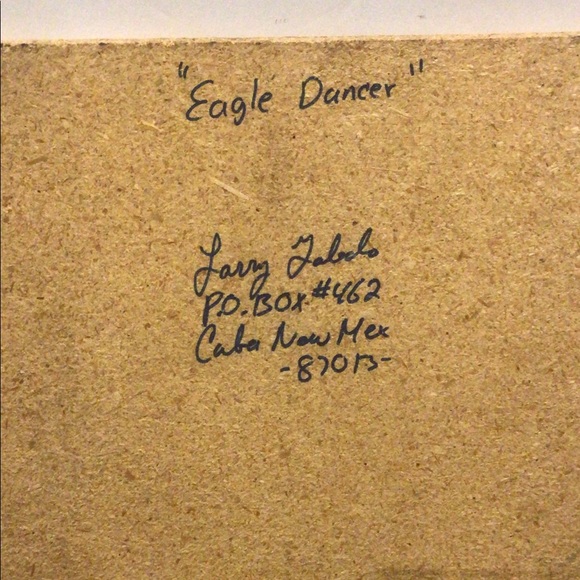 "Eagle Dancer"
Larry
P.O. Box #462
Cuba New Mex
-87013-